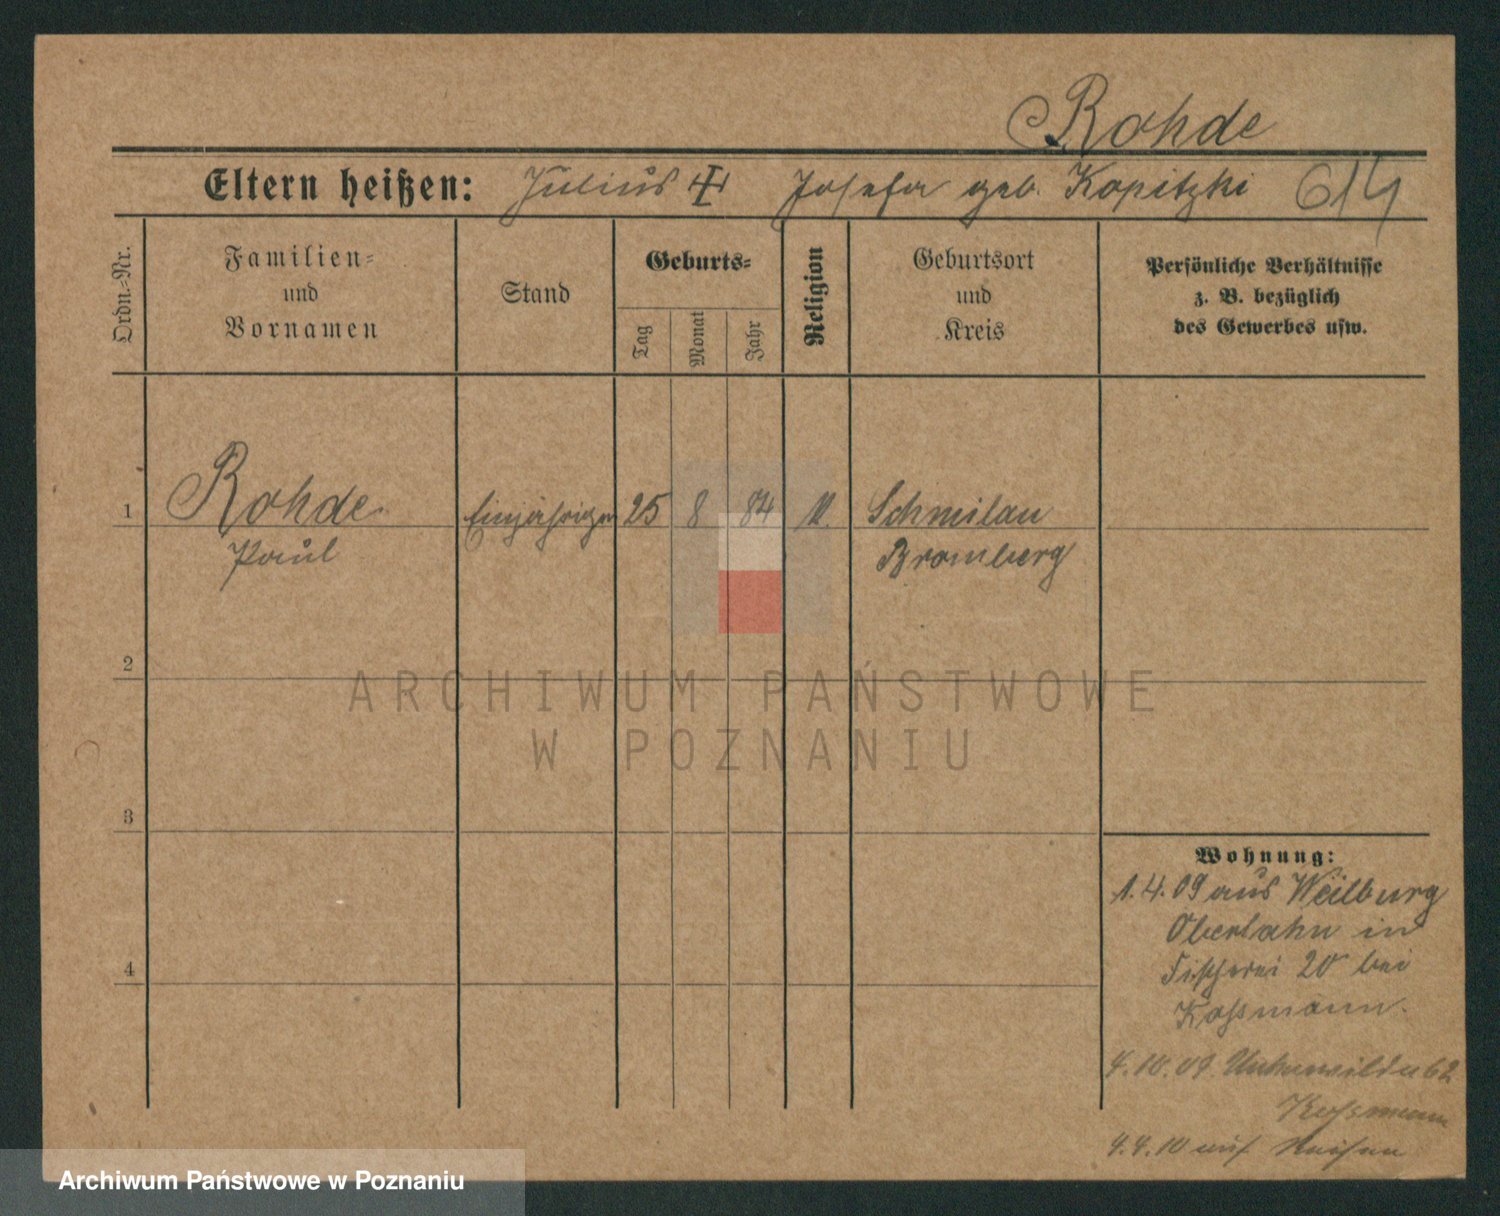 Rohde
Eltern heißen: Julius Josefa geb. Kopitzki 614
Ordn.-Nr.
Familien-
und
Vornamen
Stand
Geburts-
Tag
Monat
Jahr
Religion
Geburtsort
und
Kreis
Persönliche Verhältnisse
z. B. bezüglich
des Gewerbes usw.
1
Rohde Einjähriger 25 8 84 Schmilau
Paul Bromberg
2
ARCHIWUM PAŃSTWOWE
W POZNANIU
3
4
Wohnung:
1.4.09 aus Weilburg
Oberlahn in
Fischerei 20 bei
Kossmann.
4.10.09 62
Kossmann
4.4.10 auf Reisen
Archiwum Państwowe w Poznaniu